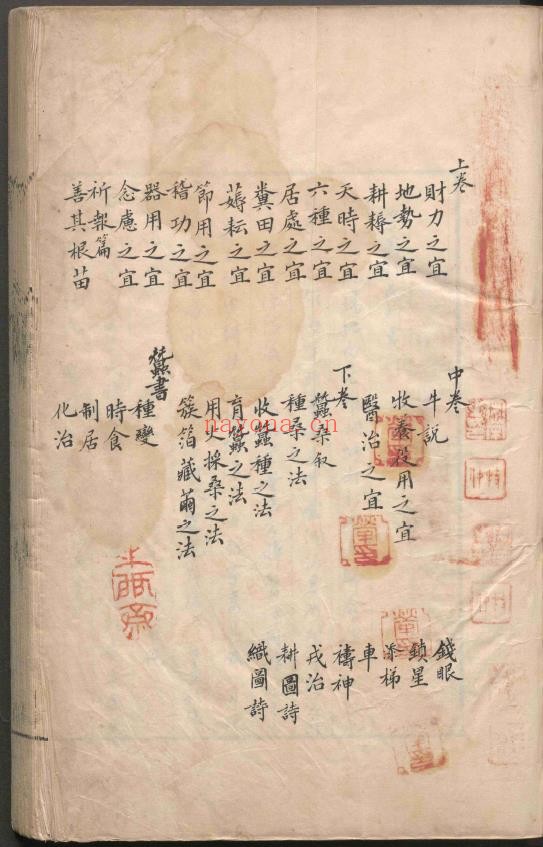 上卷
財力之宜
地勢之宜
耕耨之宜
天時之宜
六種之宜
居處之宜
糞田之宜
薅耘之宜
節用之宜
稽功之宜
器用之宜
念慮之宜
祈報篇
善其根苗
中卷
牛說
收養役用之宜
醫治之宜
下卷
蠶桑叙
種桑之法
收蠶種之法
育蠶之法
用火採桑之法
簇箔藏繭之法
蠶書
種變
時食
制居
化治
錢眼
鎖星
添梯
車
禱神
戎治
耕圖詩
織圖詩
nayona.cn